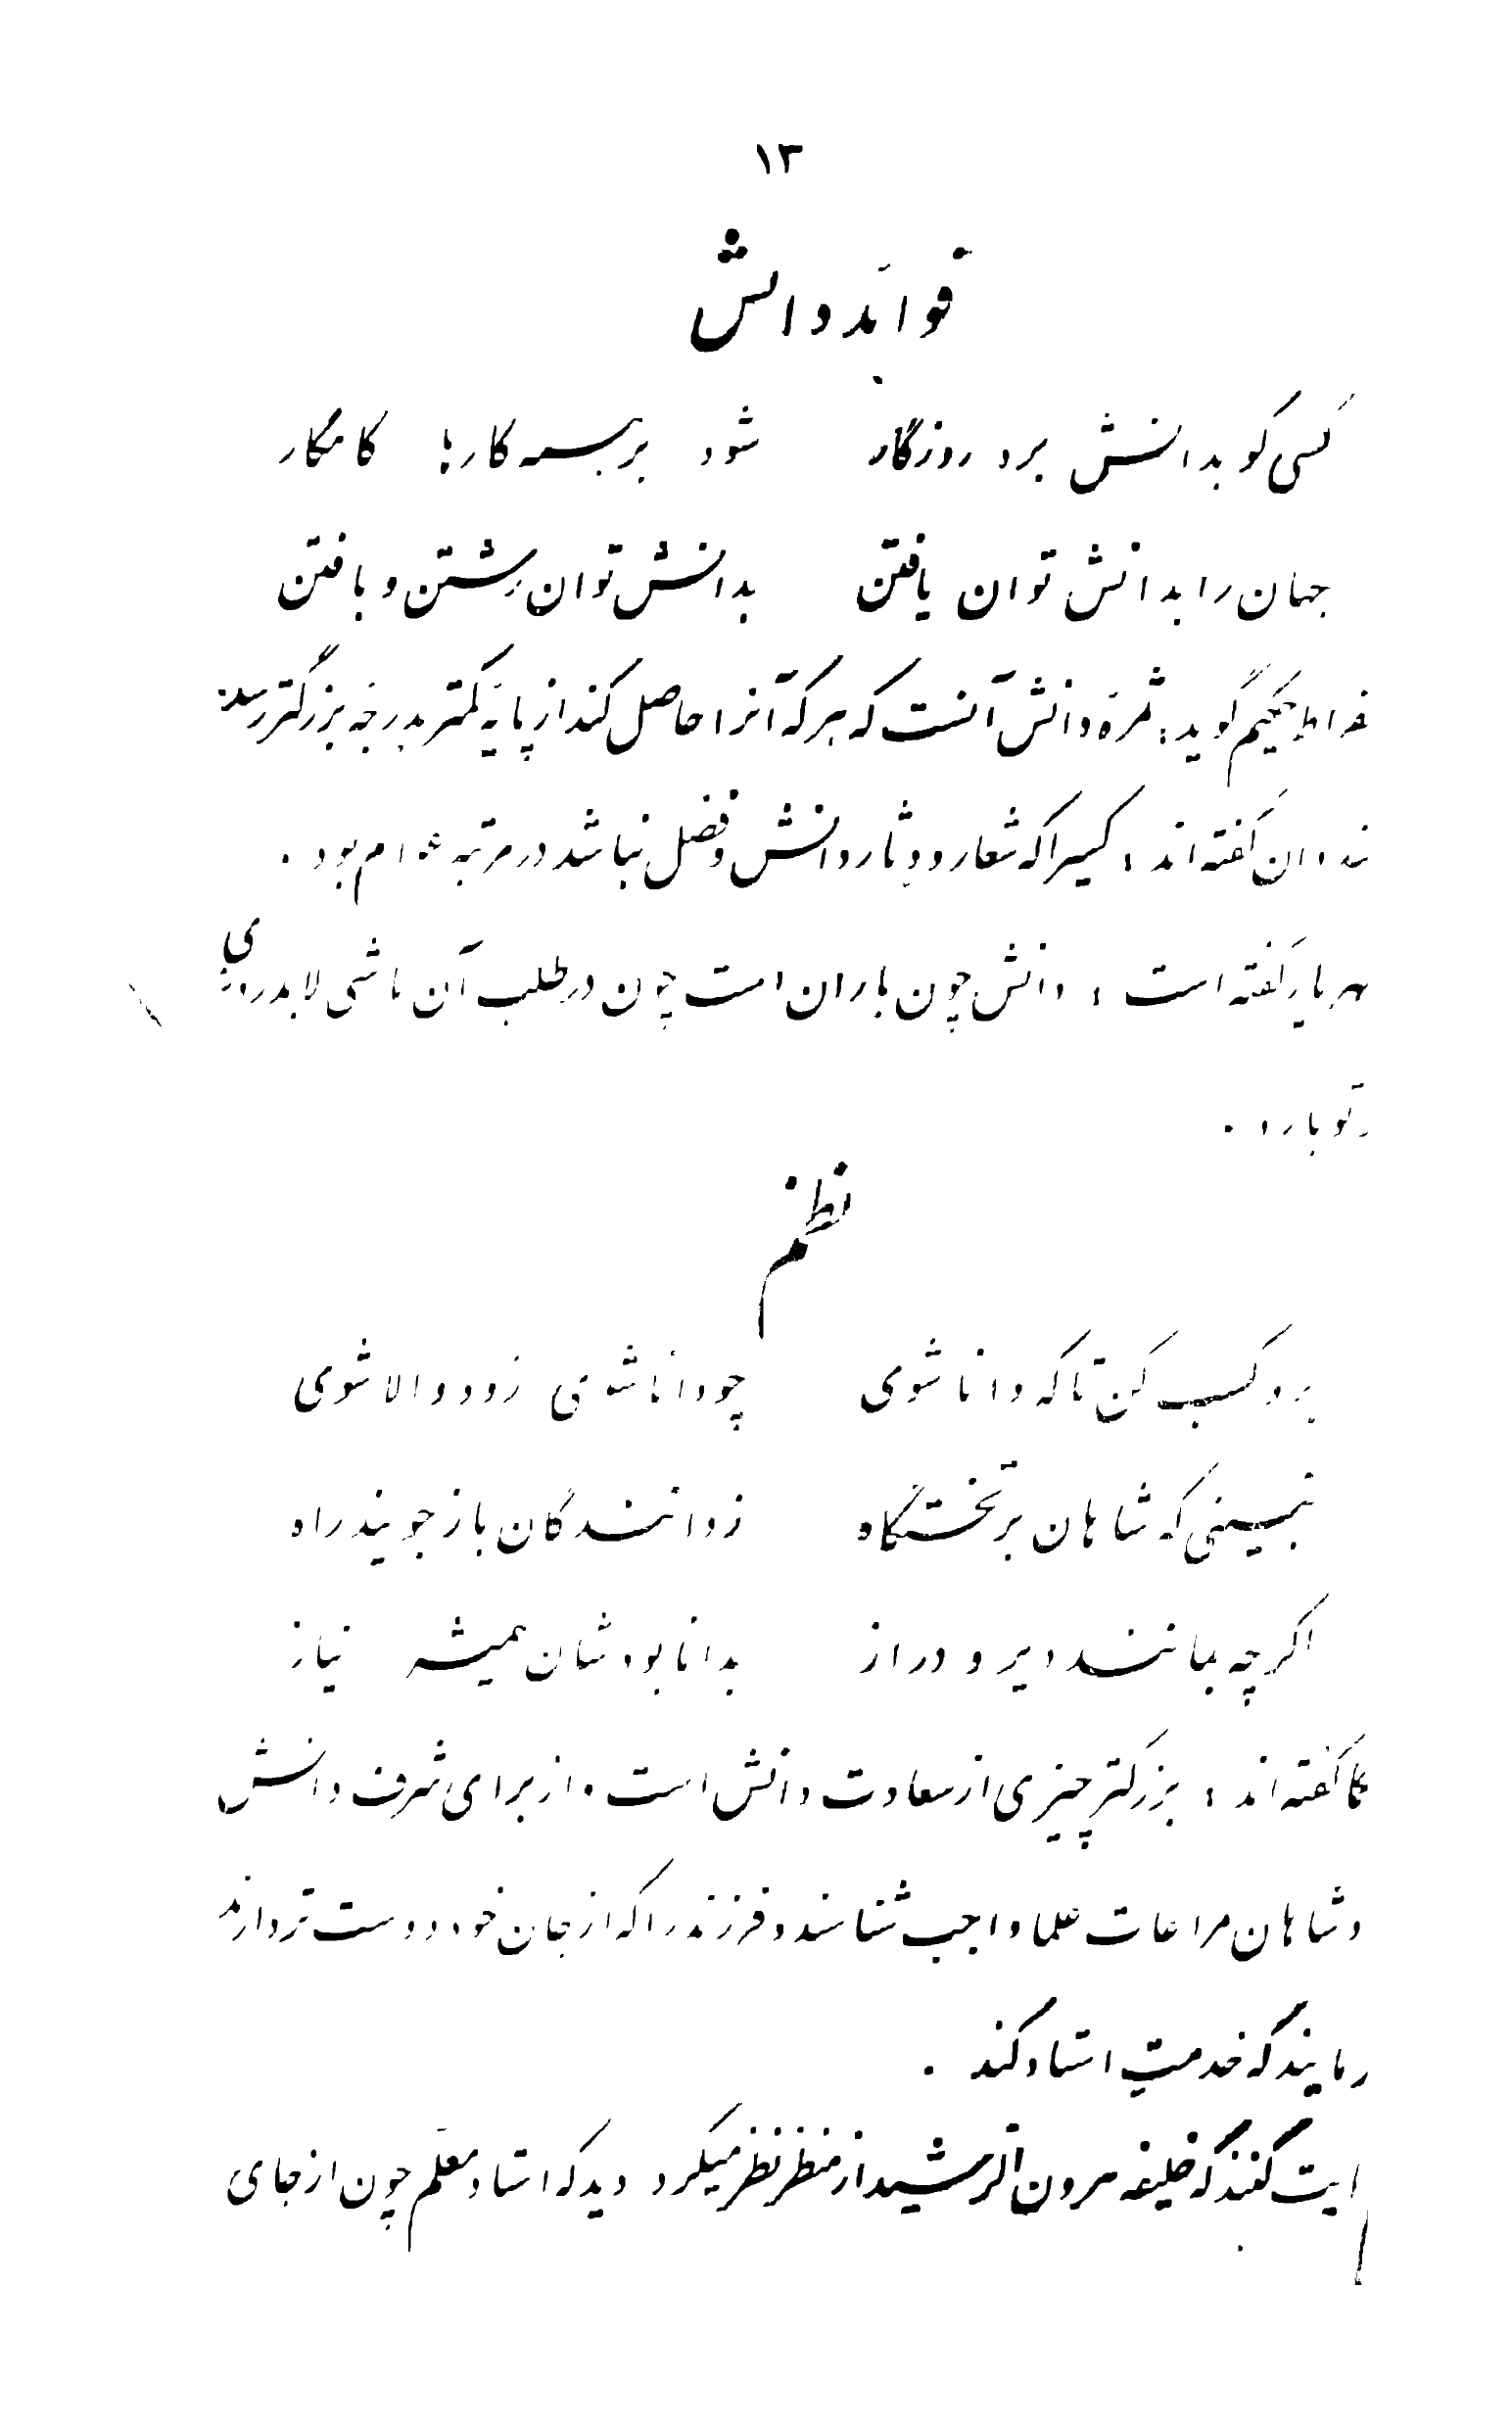 ۱۳
فوائد دانش
کسی کو بدانش برد روزگار شود بر همه کارها کامکار
جهان را بدانش توان یافتن بدانش توان رشتن و بافتن
حکیم گوید: ثمرهٔ دانش آنست که هر که آنرا حاصل کند از پایهٔ کمتر بدرجهٔ بزرگتر رسد
گفته اند: کسیرا که شعار و دثار دانش و فضل نباشد در مرتبه عوام بود.
گفته است: دانش چون باران است چون در طلب آن باشی لابد روزی
تو بارد.
نظم
برو کسب کن تا که دانا شوی چو دانا شوی زود والا شوی
نبینی که شاهان بر تختگاه ز دانندگان باز جویند راه
اگر چه بمانند دیر و دراز بدانا بودشان همیشه نیاز
گفته اند: بزرگتر چیزی از سعادت دانش است. از برای شرف دانش
شاهان مراعات علما واجب شناسند و فرزند را که از جان خود دوست تر دارند
که خدمت استاد کند.
گفتند که خلیفه هرون الرشید از منظر نظر میکرد دید که استاد معلم چون از جای